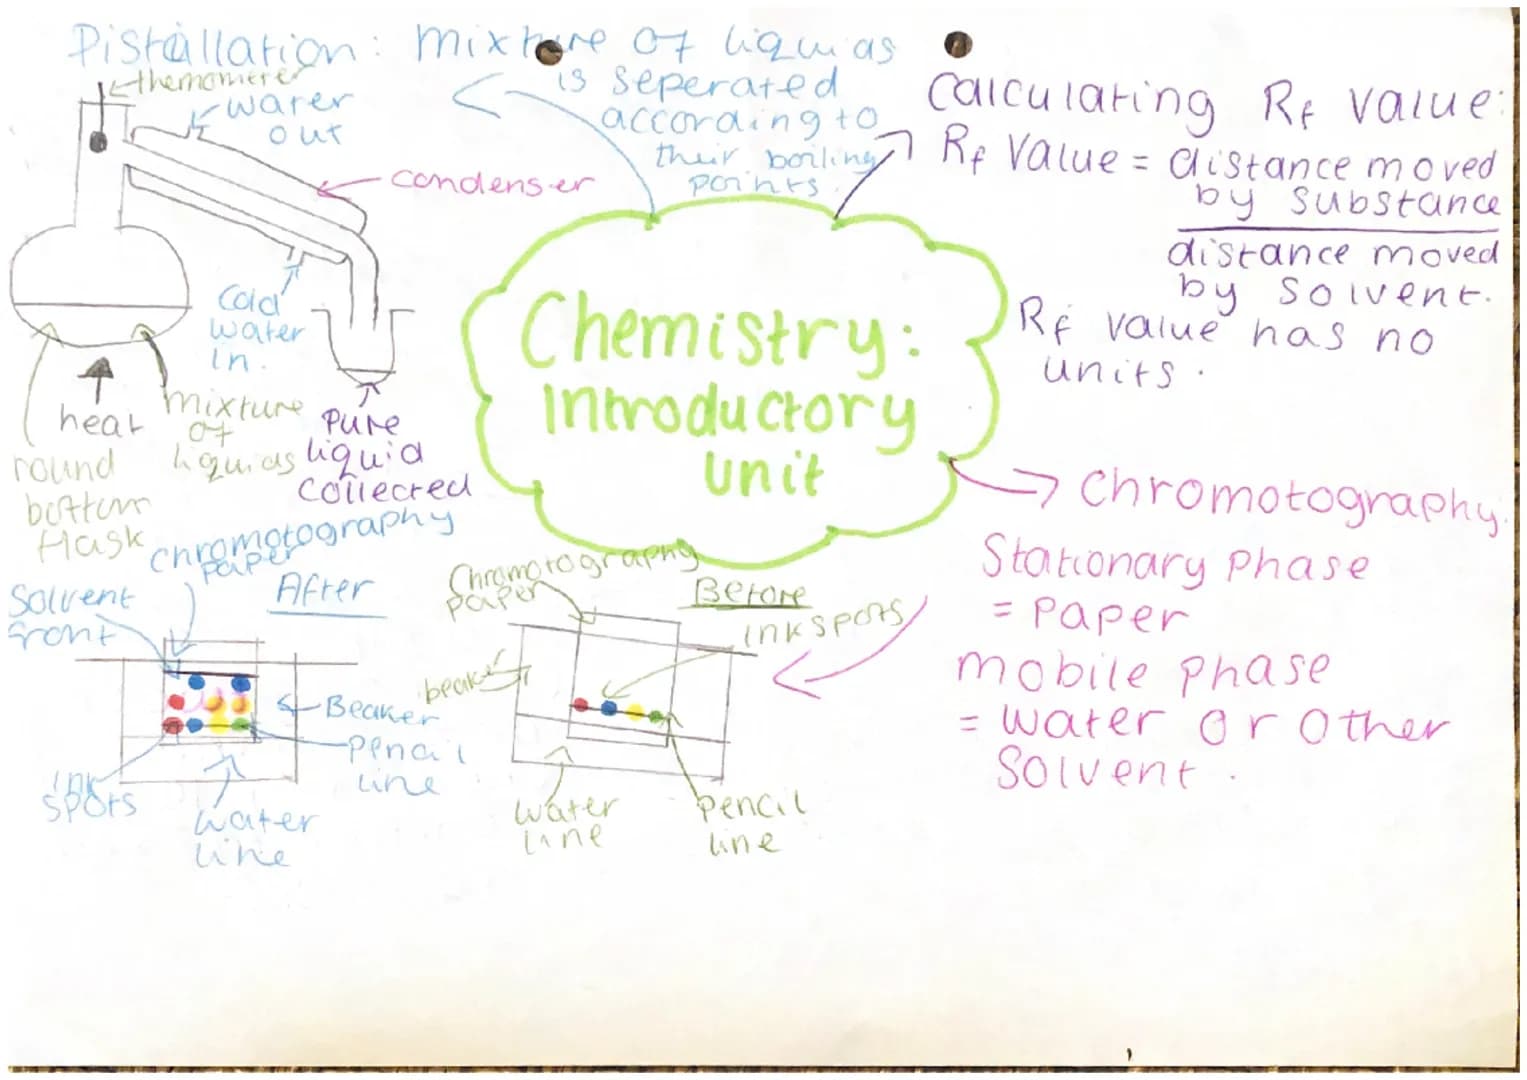 Distallation: mixture of liquids
is seperated
according to
their boiling
points.
themometer
water
out
condenser
Cold
water
in.
heat
mixture
of
liquids
round
bottom
flask
Pure
liquid
collected
Calculating Rf value:
Rf Value = distance moved
by substance
distance moved
by solvent.
Rf value has no
units.
Chemistry:
Introductory
unit
Chromotography.
Stationary phase
= paper
mobile phase
= water or other
solvent.
chromotography
paper
After
Solvent
front
Beaker
pencil
line
ink
spots
water
line
Chromotography
paper
Before
ink spots
beaker
water
line
pencil
line